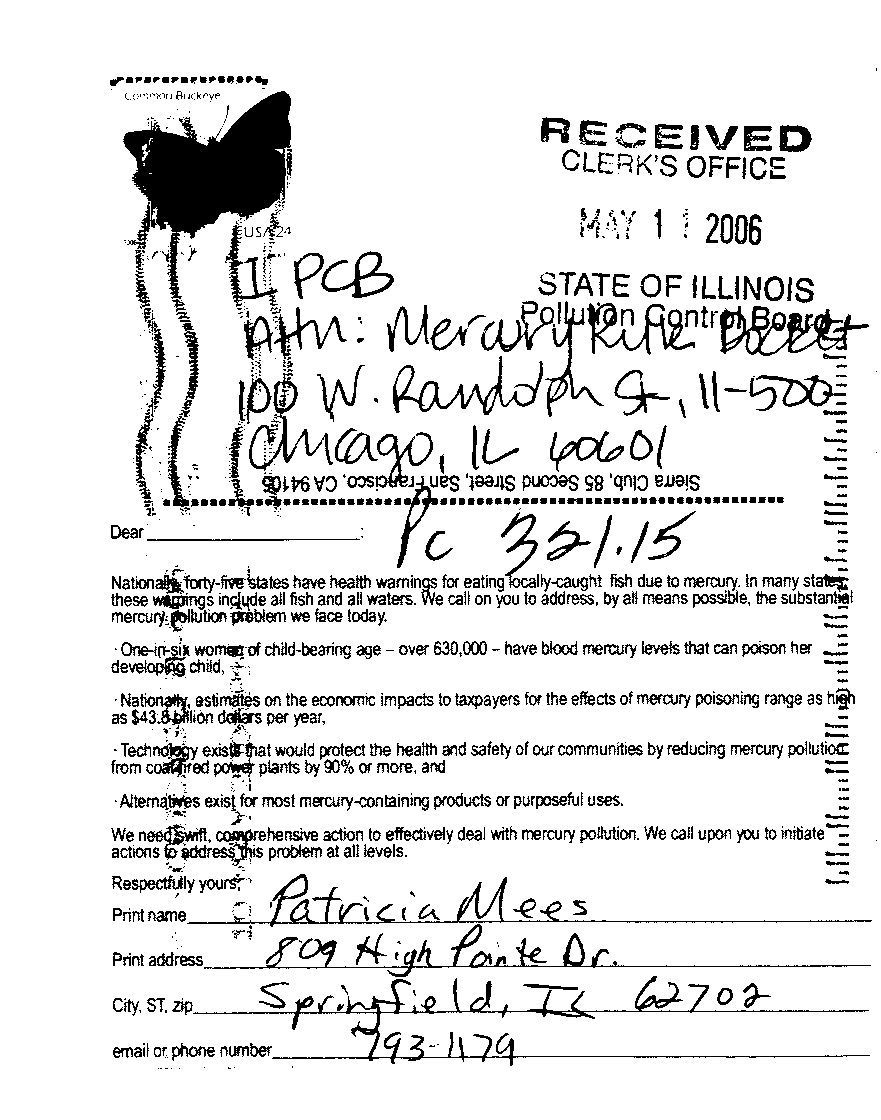 Common Buckeye
USA 24
RECEIVED
CLERK'S OFFICE
MAY 11 2006
STATE OF ILLINOIS
Pollution Control Board
IPCB
Attn: Mercury Rule Docket
100 W. Randolph St, 11-500
Chicago, IL 60601
Sierra Club, 85 Second Street, San Francisco, CA 94105
Dear
PC 321.15
Nationally, forty-five states have health warnings for eating locally-caught fish due to mercury. In many states
these warnings include all fish and all waters. We call on you to address, by all means possible, the substantial
mercury pollution problem we face today.
· One-in-six women of child-bearing age – over 630,000 – have blood mercury levels that can poison her
developing child,
· Nationally, estimates on the economic impacts to taxpayers for the effects of mercury poisoning range as high
as $43.8 billion dollars per year,
· Technology exists that would protect the health and safety of our communities by reducing mercury pollution
from coal-fired power plants by 90% or more, and
· Alternatives exist for most mercury-containing products or purposeful uses.
We need swift, comprehensive action to effectively deal with mercury pollution. We call upon you to initiate
actions to address this problem at all levels.
Respectfully yours,
Print name Patricia Mees
Print address 809 High Pointe Dr.
City, ST, zip Springfield, IL 62702
email or phone number 793-1179